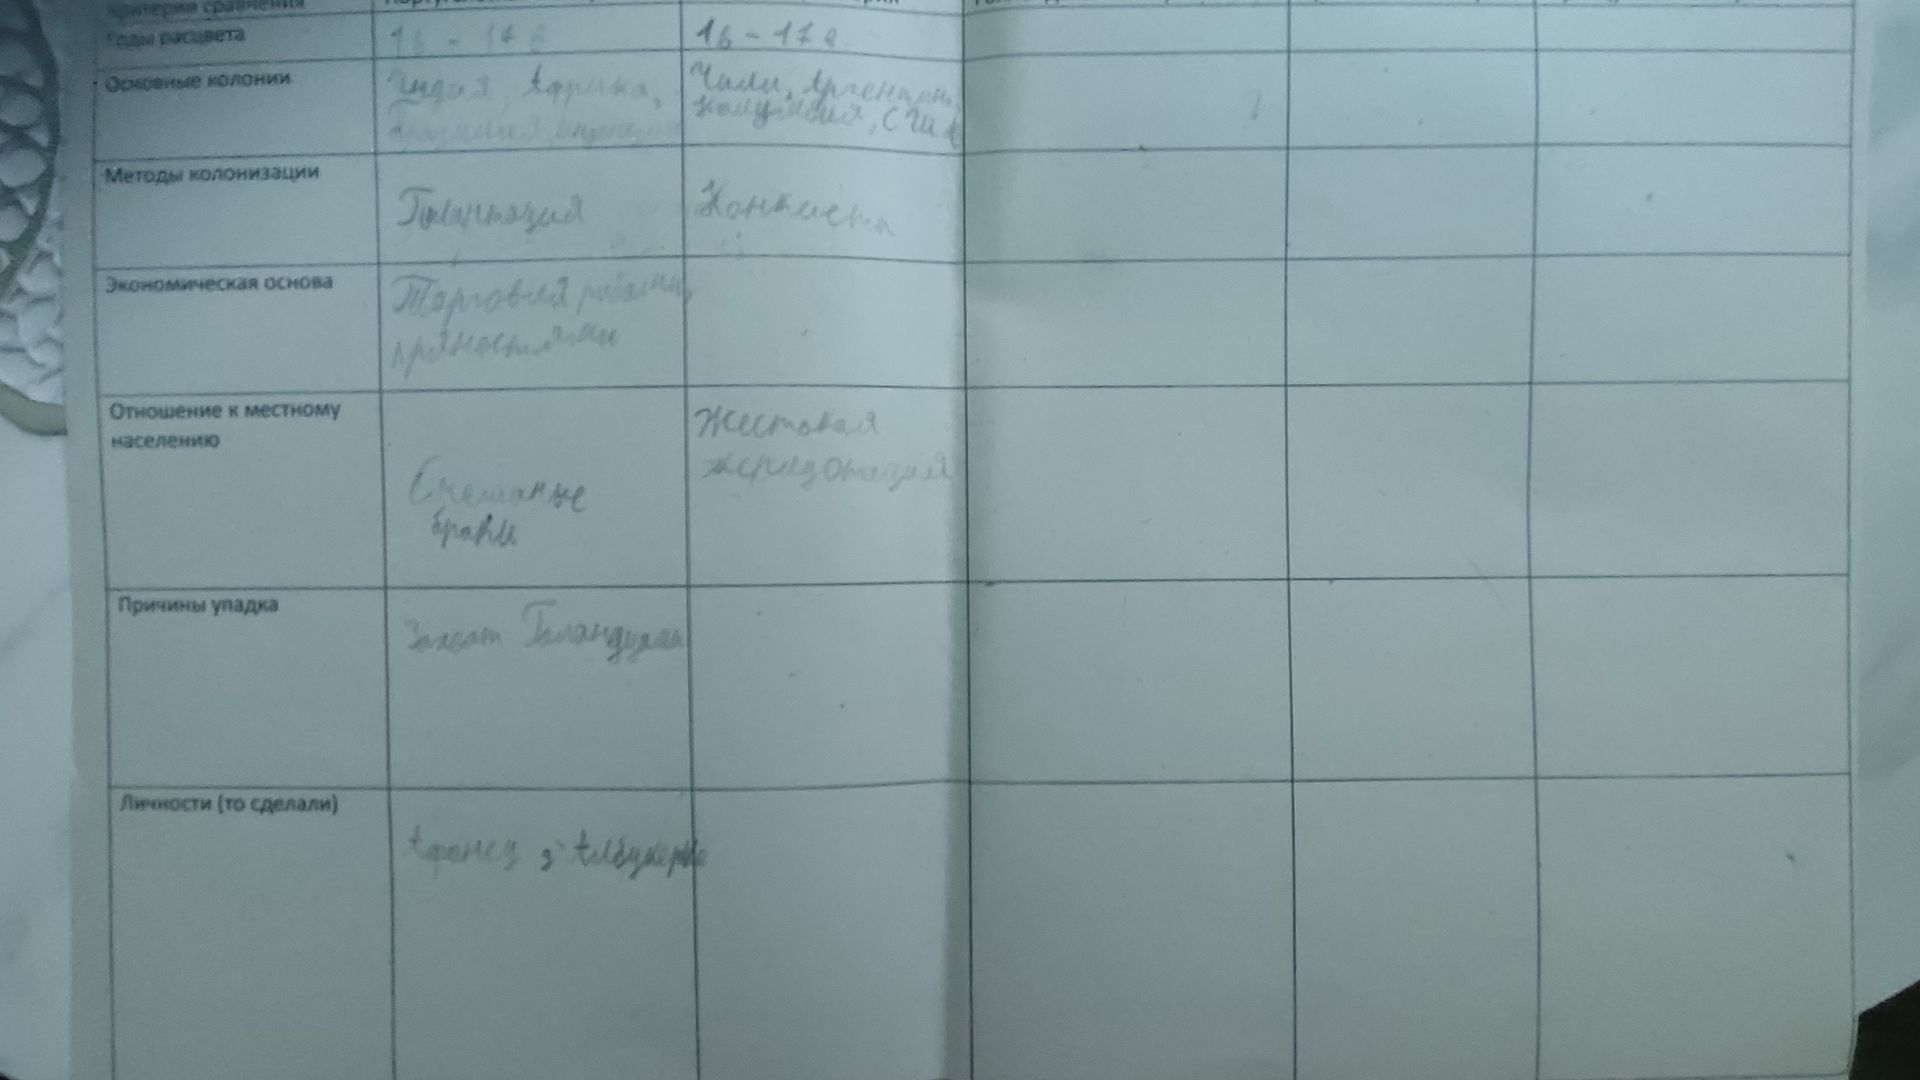 Критерии сравнения
Годы расцвета
16 - 17 в
16 - 17 в
Основные колонии
Индия, Африка,
Чили, Аргентина,
Колумбия, США
Методы колонизации
Плантация
Конкиста
Экономическая основа
Торговля рабами,
пряностями
Отношение к местному
населению
Смешаные
браки
Жестокая
Причины упадка
Захват
Личности (то сделали)
Афонсу д'Албукерки